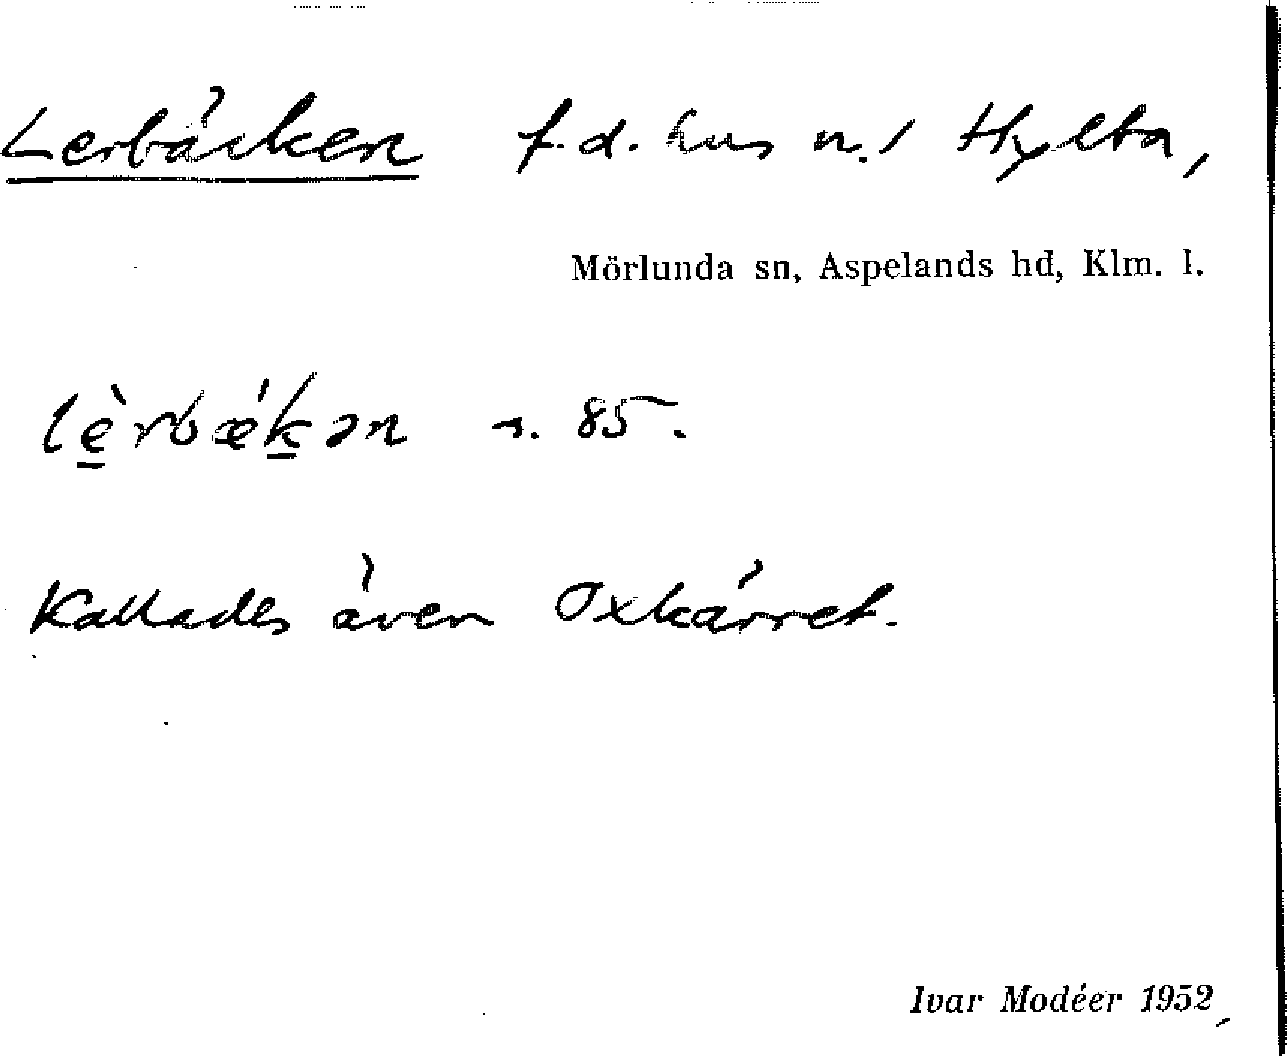 Lerbäcken f.d. hus u./ Hylta,
Mörlunda sn, Aspelands hd, Klm. l.
lè̱rbǽḵən s. 85.
Kallades även Oxkärret.
Ivar Modéer 1952